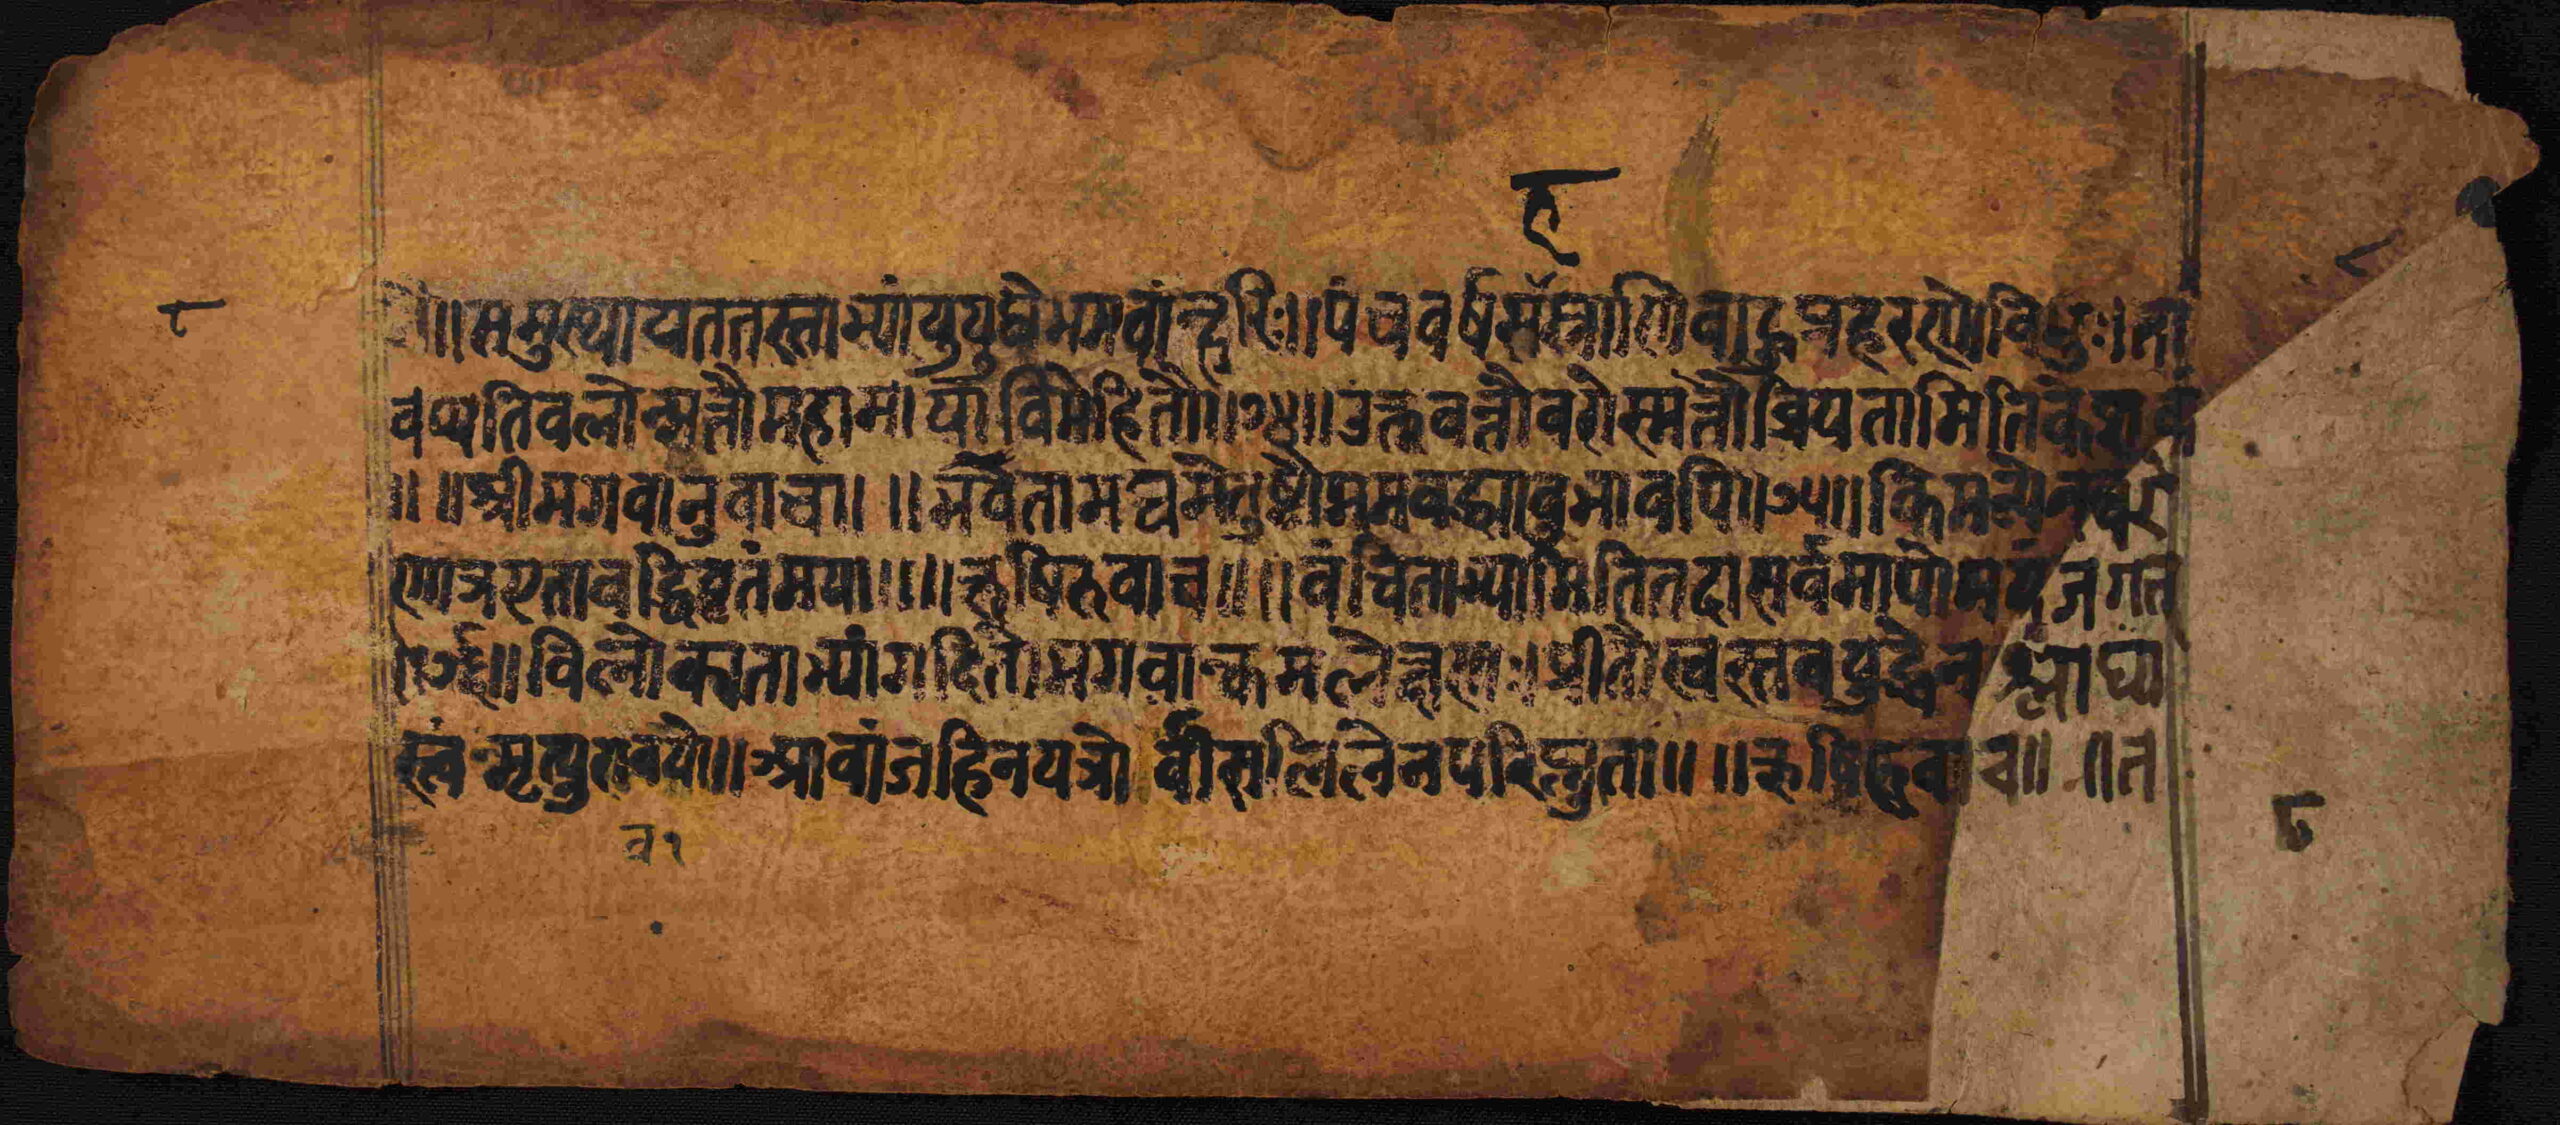 ह
८
॥समुत्थायततस्ताभ्यांयुयुधेभगवान्हरिः॥पंचवर्षसहस्राणिबाहुप्रहरणोविभुः।ता
वप्यतिबलोन्मत्तौमहामायाविमोहितौ॥१४॥उक्तवन्तौवरोस्मत्तोव्रियतामितिकेशवं
॥ ॥श्रीभगवानुवाच॥ ॥भवेतामद्यमेतुष्टौममवध्यावुभावपि॥१५॥किमन्येनवरे
णात्रएतावद्धिवृतंमया॥ ॥ऋषिरुवाच॥ ॥वंचिताभ्यामितितदासर्वमापोमयंजगत्
॥१६॥विलोक्यताभ्यांगदितोभगवान्कमलेक्षणः॥प्रीतौस्वस्तवयुद्धेनश्लाघ्य
स्त्वंमृत्युरावयोः॥आवांजहिनयत्रोर्वीसलिलेनपरिप्लुता॥ ॥ऋषिरुवाच॥ ॥त
८